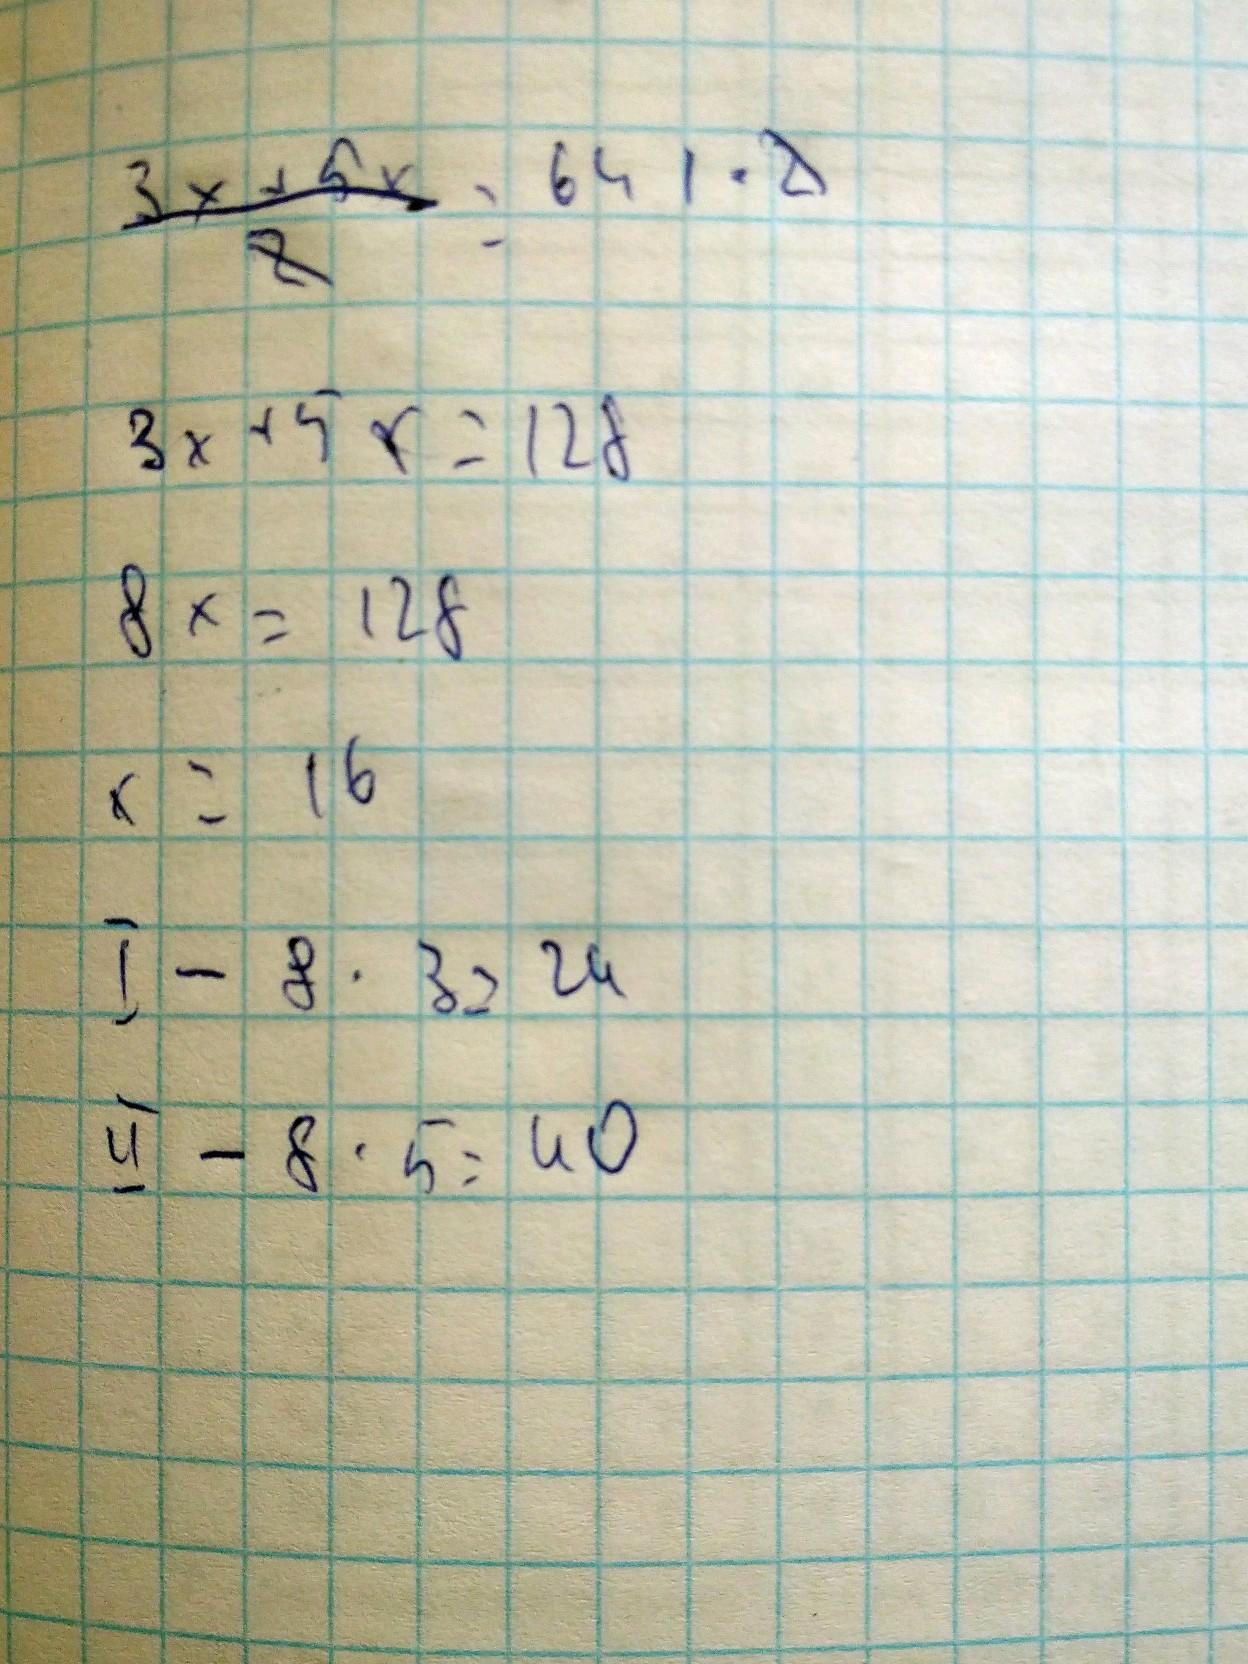 3x+5x/2 = 64 | · 2
3x+5x=128
8x = 128
x = 16
I - 8 · 3 = 24
II - 8 · 5 = 40